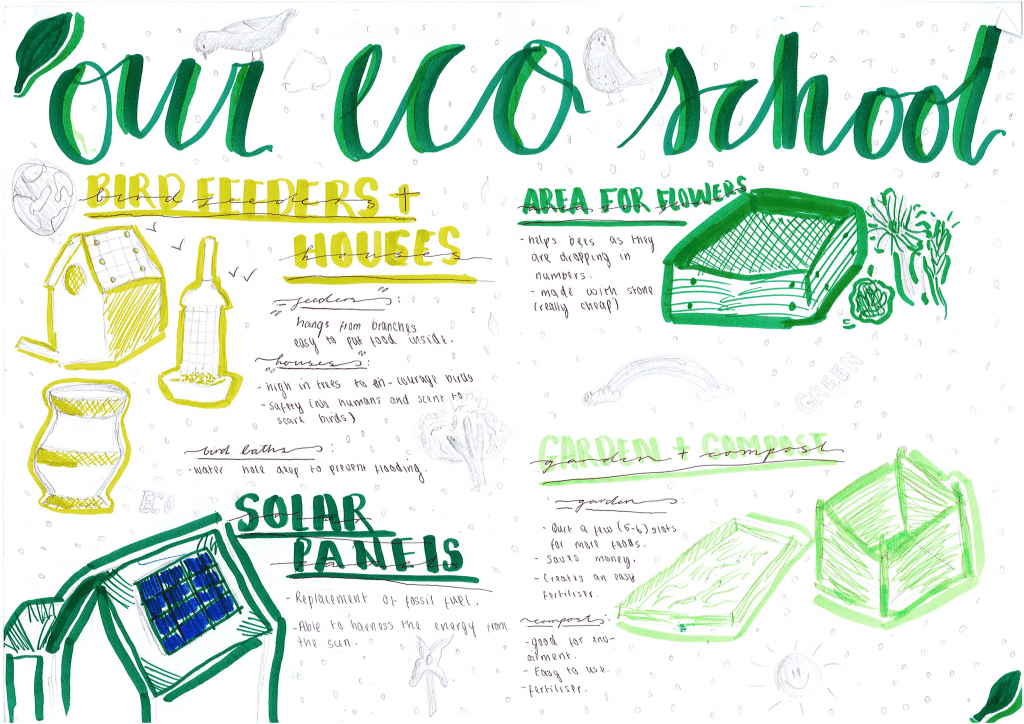 our eco school
BIRD FEEDERS +
bird feeders +
HOUSES
houses
"feeders":
hangs from branches
easy to put food inside.
"houses":
- high in trees to en-courage birds
- safety (no humans and scent to
scare birds)
bird baths
- water hole to prevent flooding.
ECO
SOLAR
PANELS
- Replacement of fossil fuel.
- Able to harness the energy from
the sun.
AREA FOR FLOWERS
area for flowers
- helps bees as they
are dropping in
numbers.
- made with stone
(really cheap)
GREEN
GARDEN + COMPOST
garden + compost
garden:
- a few (5-6)
for more foods.
- saves money.
- creates an easy
fertiliser.
compost:
- good for
- Easy to use.
- fertiliser.